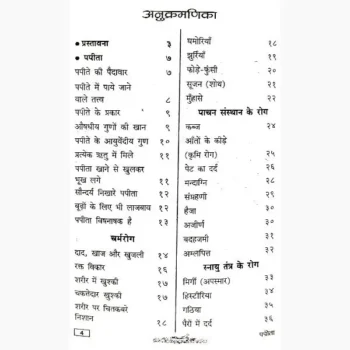 अनुक्रमणिका
• प्रस्तावना ३
• पपीता ७
पपीते की पैदावार ७
पपीते में पाये जाने
वाले तत्व ८
पपीते के प्रकार ९
औषधीय गुणों की खान ९
पपीते के आयुर्वेदीय गुण १०
प्रत्येक ऋतु में मिले ११
पपीता खाने से खुलकर
भूख लगे ११
सौन्दर्य निखारे पपीता १२
बूड़ों के लिए भी लाजवाब १२
पपीता विषनाषक है १३
चर्मरोग
दाद, खाज और खुजली १४
रक्त विकार १६
शरीर में खुश्की १७
चकतेदार खुश्की १७
शरीर पर चितकबरे
निशान १८
4
घमोरियाँ १८
झुर्रियाँ १९
फोड़े-फुंसी २०
सूजन (शोथ) २१
मुँहासे २२
पाचन संस्थान के रोग
कब्ज २४
आँतों के कीड़े
(कृमि रोग) २५
पेट का दर्द २६
मन्दाग्नि २८
संग्रहणी २९
हैजा ३०
अजीर्ण ३०
बदहजमी ३१
अम्लपित्त ३२
स्नायु तंत्र के रोग
मिर्गी (अपस्मार) ३३
हिस्टीरिया ३४
गठिया ३५
पैरों में दर्द ३६
पपीता